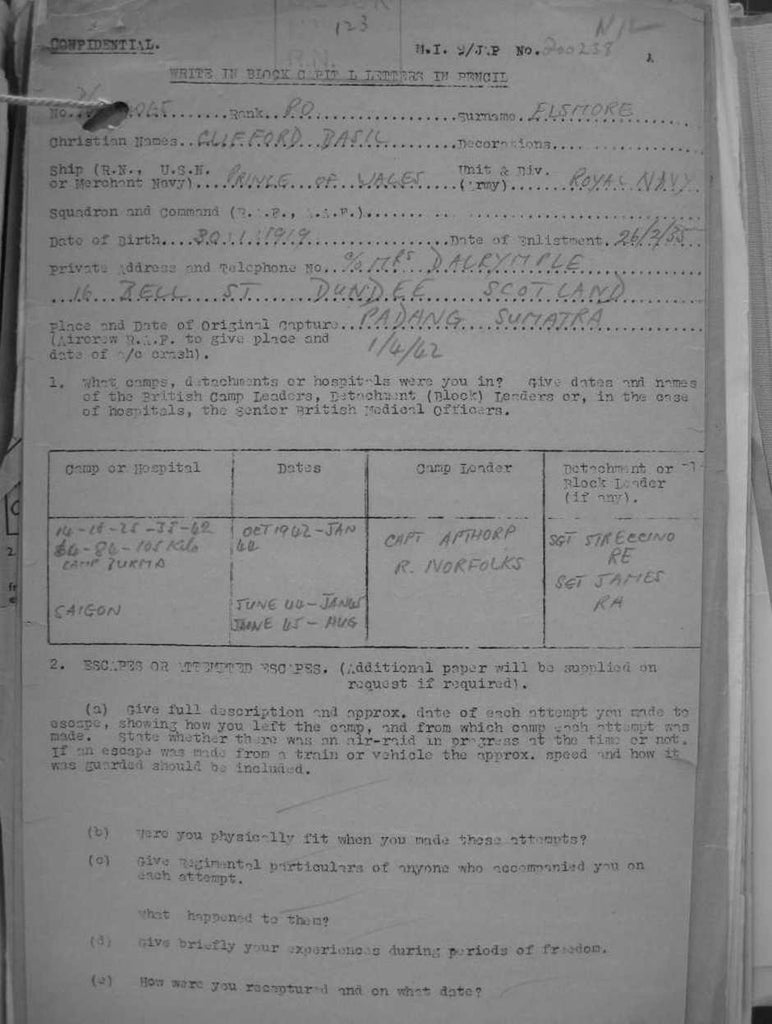 123
NIL
CONFIDENTIAL.
M.I. 9/JAP No. 200238
WRITE IN BLOCK CAPITAL LETTERS IN PENCIL
No. Rank.. P.O. Surname. ELSMORE
Christian Names.. CLIFFORD BASIL Decorations
Ship (R.N., U.S.N. Unit & Div.
or Merchant Navy).... PRINCE OF WALES (Army) ROYAL NAVY
Squadron and Command (R.A.F., A.A.F.)
Date of Birth.... 30.1.1919 Date of Enlistment. 26/2/35
Private Address and Telephone No.. c/o MRS DALRYMPLE
16 BELL ST DUNDEE SCOTLAND
Place and Date of Original Capture.. PADANG SUMATRA
(Aircrew R.A.F. to give place and 1/4/42
date of a/c crash).
1. What camps, detachments or hospitals were you in? Give dates and names
of the British Camp Leaders, Detachment (Block) Leaders or, in the case
of hospitals, the Senior British Medical Officers.
Camp or Hospital Dates Camp Leader Detachment or
Block Leader
(if any).
14-18-25-35-62 OCT 1942-JAN CAPT APTHORP SGT
84-86-105 Kilo 44 R. NORFOLKS RE
CAMP BURMA SGT JAMES
RA
SAIGON JUNE 44-JAN 45
JUNE 45-AUG
2. ESCAPES OR ATTEMPTED ESCAPES. (Additional paper will be supplied on
request if required).
(a) Give full description and approx. date of each attempt you made to
escape, showing how you left the camp, and from which camp each attempt was
made. State whether there was an air-raid in progress at the time or not.
If an escape was made from a train or vehicle the approx. speed and how it
was guarded should be included.
(b) Were you physically fit when you made these attempts?
(c) Give Regimental particulars of anyone who accompanied you on
each attempt.
What happened to them?
(d) Give briefly your experiences during periods of freedom.
(e) How were you recaptured and on what date?